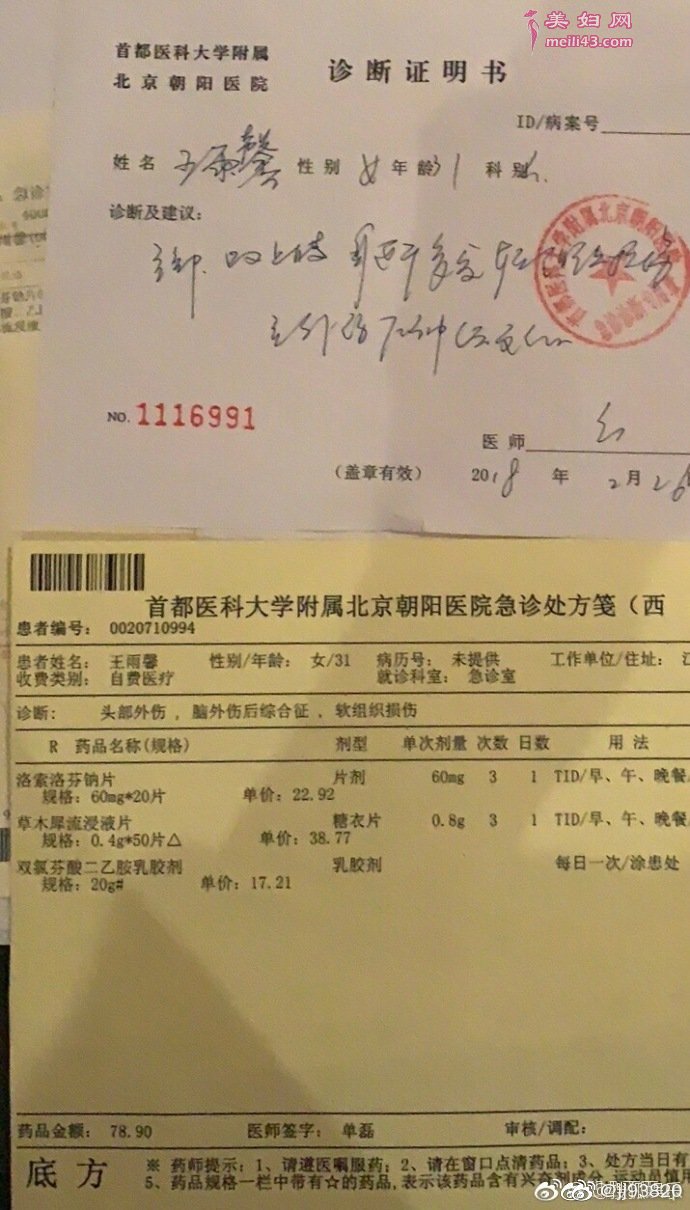 美妇网
meili43.com
首都医科大学附属
北京朝阳医院
诊断证明书
ID/病案号
姓名 王雨馨 性别 女 年龄 31 科别
诊断及建议：
NO. 1116991
医师
（盖章有效） 2018 年 2月 26
首都医科大学附属北京朝阳医院急诊处方笺（西
患者编号： 0020710994
患者姓名： 王雨馨 性别/年龄： 女/31 病历号： 未提供 工作单位/住址： 江
收费类别： 自费医疗 就诊科室： 急诊室
诊断： 头部外伤，脑外伤后综合征，软组织损伤
R 药品名称(规格) 剂型 单次剂量 次数 日数 用法
洛索洛芬钠片 片剂 60mg 3 1 TID/早、午、晚餐
规格：60mg*20片 单价：22.92
草木犀流浸液片 糖衣片 0.8g 3 1 TID/早、午、晚餐
规格：0.4g*50片△ 单价：38.77
双氯芬酸二乙胺乳胶剂 乳胶剂 每日一次/涂患处
规格：20g# 单价：17.21
药品金额： 78.90 医师签字： 单磊 审核/调配：
底方 ※ 药师提示：1、请遵医嘱服药；2、请在窗口点清药品；3、处方当日有
5、药品规格一栏中带有☆的药品，表示该药品含有兴奋剂成分，运动员慎用